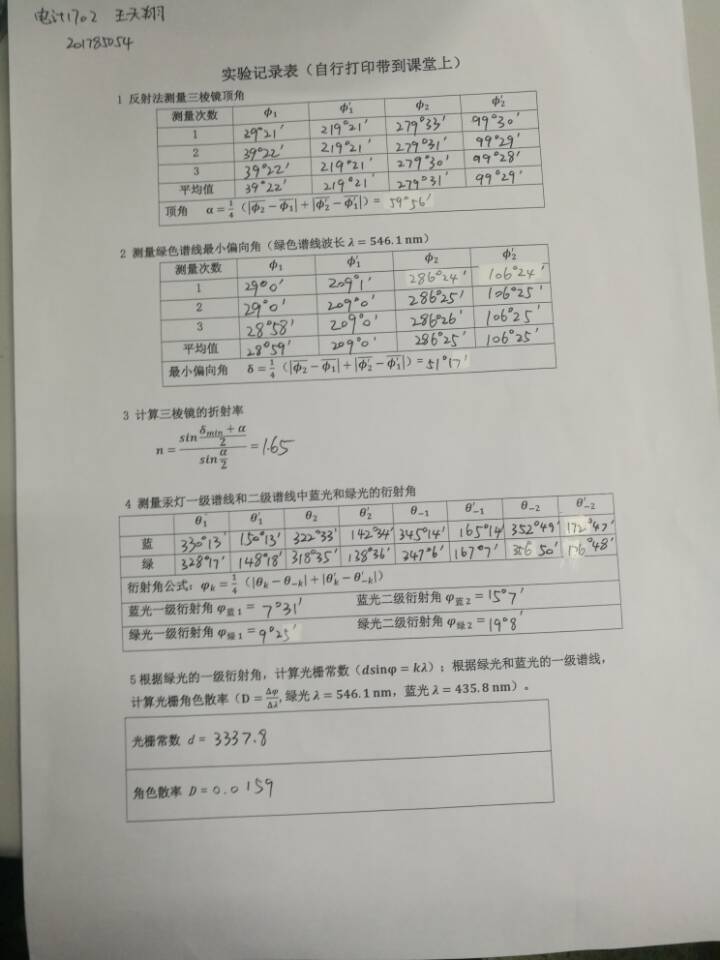 电计1702 王天翔
201785054
实验记录表（自行打印带到课堂上）
1 反射法测量三棱镜顶角
测量次数 ϕ₁ ϕ₁′ ϕ₂ ϕ₂′
1 29°21′ 219°21′ 279°33′ 99°30′
2 39°22′ 219°21′ 279°31′ 99°29′
3 39°22′ 219°21′ 279°30′ 99°28′
平均值 39°22′ 219°21′ 279°31′ 99°29′
顶角 α=¼（|ϕ₂−ϕ₁|+|ϕ₂′−ϕ₁′|）= 59°56′
2 测量绿色谱线最小偏向角（绿色谱线波长 λ=546.1 nm）
测量次数 ϕ₁ ϕ₁′ ϕ₂ ϕ₂′
1 29°0′ 209°1′ 286°24′ 106°24′
2 29°0′ 209°0′ 286°25′ 106°25′
3 28°58′ 209°0′ 286°26′ 106°25′
平均值 28°59′ 209°0′ 286°25′ 106°25′
最小偏向角 δ=¼（|ϕ₂−ϕ₁|+|ϕ₂′−ϕ₁′|）=51°17′
3 计算三棱镜的折射率
n = sin((δmin+α)/2) / sin(α/2) = 1.65
4 测量汞灯一级谱线和二级谱线中蓝光和绿光的衍射角
θ₁ θ₁′ θ₂ θ₂′ θ₋₁ θ₋₁′ θ₋₂ θ₋₂′
蓝 330°13′ 150°13′ 322°33′ 142°34′ 345°14′ 165°14′ 352°49′ 172°47′
绿 328°17′ 148°18′ 318°35′ 138°36′ 347°6′ 167°7′ 356°50′ 176°48′
衍射角公式：φₖ=¼（|θₖ−θ₋ₖ|+|θₖ′−θ₋ₖ′|）
蓝光一级衍射角 φ蓝1 = 7°31′ 蓝光二级衍射角 φ蓝2 = 15°7′
绿光一级衍射角 φ绿1 = 9°25′ 绿光二级衍射角 φ绿2 = 19°8′
5 根据绿光的一级衍射角，计算光栅常数（dsinφ=kλ）；根据绿光和蓝光的一级谱线，
计算光栅角色散率（D=Δφ/Δλ, 绿光 λ=546.1 nm，蓝光 λ=435.8 nm）。
光栅常数 d = 3337.8
角色散率 D = 0.0159